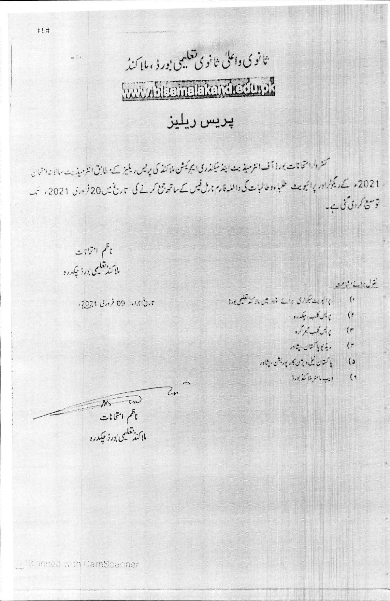 ثانوی و اعلیٰ ثانوی تعلیمی بورڈ، ملاکنڈ
www.bisemalakand.edu.pk
پریس ریلیز
کنٹرولر امتحانات بورڈ آف انٹرمیڈیٹ اینڈ سیکنڈری ایجوکیشن ملاکنڈ کی پریس ریلیز کے مطابق انٹرمیڈیٹ سالانہ امتحان
2021ء کے ریگولر اور پرائیویٹ طلباء و طالبات کی داخلہ فارم نارمل فیس کے ساتھ جمع کرنے کی تاریخ میں 20 فروری 2021ء تک
توسیع کر دی گئی ہے۔
ناظم امتحانات
ملاکنڈ تعلیمی بورڈ چکدرہ
تاریخ اجراء 09 فروری 2021
1) پرائیویٹ سیکرٹری برائے چیئرمین ملاکنڈ تعلیمی بورڈ
2) پریس کلب چکدرہ
3) پریس کلب تیمرگرہ
4) ریڈیو پاکستان پشاور
5) پاکستان ٹیلی ویژن کارپوریشن، پشاور
6) ویب ماسٹر ملاکنڈ بورڈ
ناظم امتحانات
ملاکنڈ تعلیمی بورڈ چکدرہ
Scanned with CamScanner